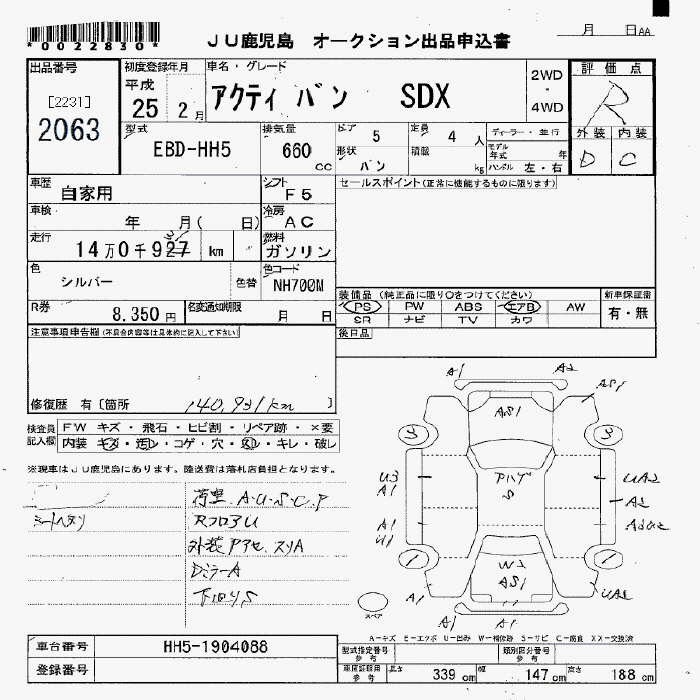 *0022830*
JU鹿児島 オークション出品申込書
月 日AA
出品番号
[2231]
2063
初度登録年月
平成
25 2月
車名・グレード
アクティ バン SDX
2WD
・
4WD
評価点
R
外装 内装
D C
型式
EBD-HH5
排気量
660 cc
ドア 5
形状 バン
定員 4 人
積載 kg
ディーラー・並行
モデル年式 年
ハンドル 左・右
車歴
自家用
シフト
F5
セールスポイント(正常に機能するものに限ります)
車検
年 月( 日)
冷房
AC
走行
14万0千927 km
31
燃料
ガソリン
色
シルバー
色替
色コード
NH700M
装備品 (純正品に限り○をつけてください)
新車保証書
PS PW ABS エアB AW
有・無
SR ナビ TV カワ
R券
8,350円
名変通知期限
月 日
注意事項申告欄(不具合内容等は具体的に記入して下さい)
後日品
修復歴 有〔箇所 140,931km 〕
検査員記入欄
FW キズ・飛石・ヒビ割・リペア跡・×要
内装 キズ・汚レ・コゲ・穴・欠レ・キレ・破レ
※現車はJU鹿児島にあります。陸送費は落札店負担となります。
荷室 A.U.S.C.P
シートヘタリ
RフロアU
外装アアセ、スリA
DミラーA
下回りS
A1 A2
AS1
AS1
3 3
U3
A1
アハゲ
S
UA2
A2
A2U2
A1
U1
1 1
W2
AS1
UA2
A1
A1 A1
スペア
A-キズ E-エクボ U-凹み W-補修跡 S-サビ C-腐食 XX-交換済
車台番号
HH5-1904088
登録番号
型式指定番号 参考
類別区分番号 参考
車庫証明用 参考
長さ 339 cm 幅 147 cm 高さ 188 cm